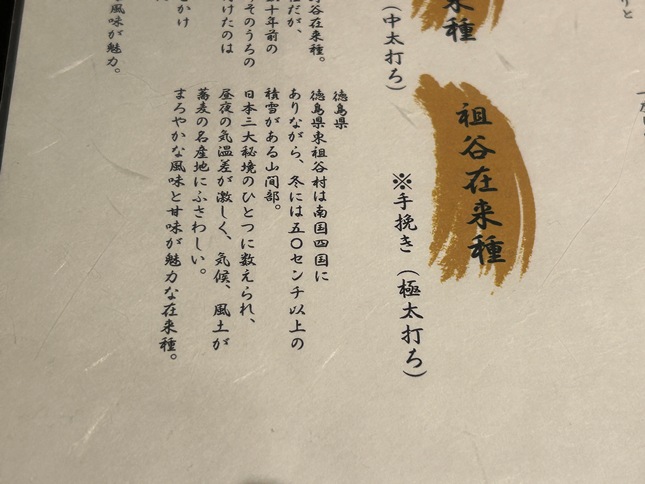 りと
来種
(中太打ち)
野在来種。
種だが、
数十年前の
そのうちの
けたのは
かけ
風味が魅力。
祖谷在来種
※手挽き(極太打ち)
徳島県
徳島県東祖谷村は南国四国に
ありながら、冬には五〇センチ以上の
積雪がある山間部。
日本三大秘境のひとつに数えられ、
昼夜の気温差が激しく、気候、風土が
蕎麦の名産地にふさわしい。
まろやかな風味と甘味が魅力な在来種。